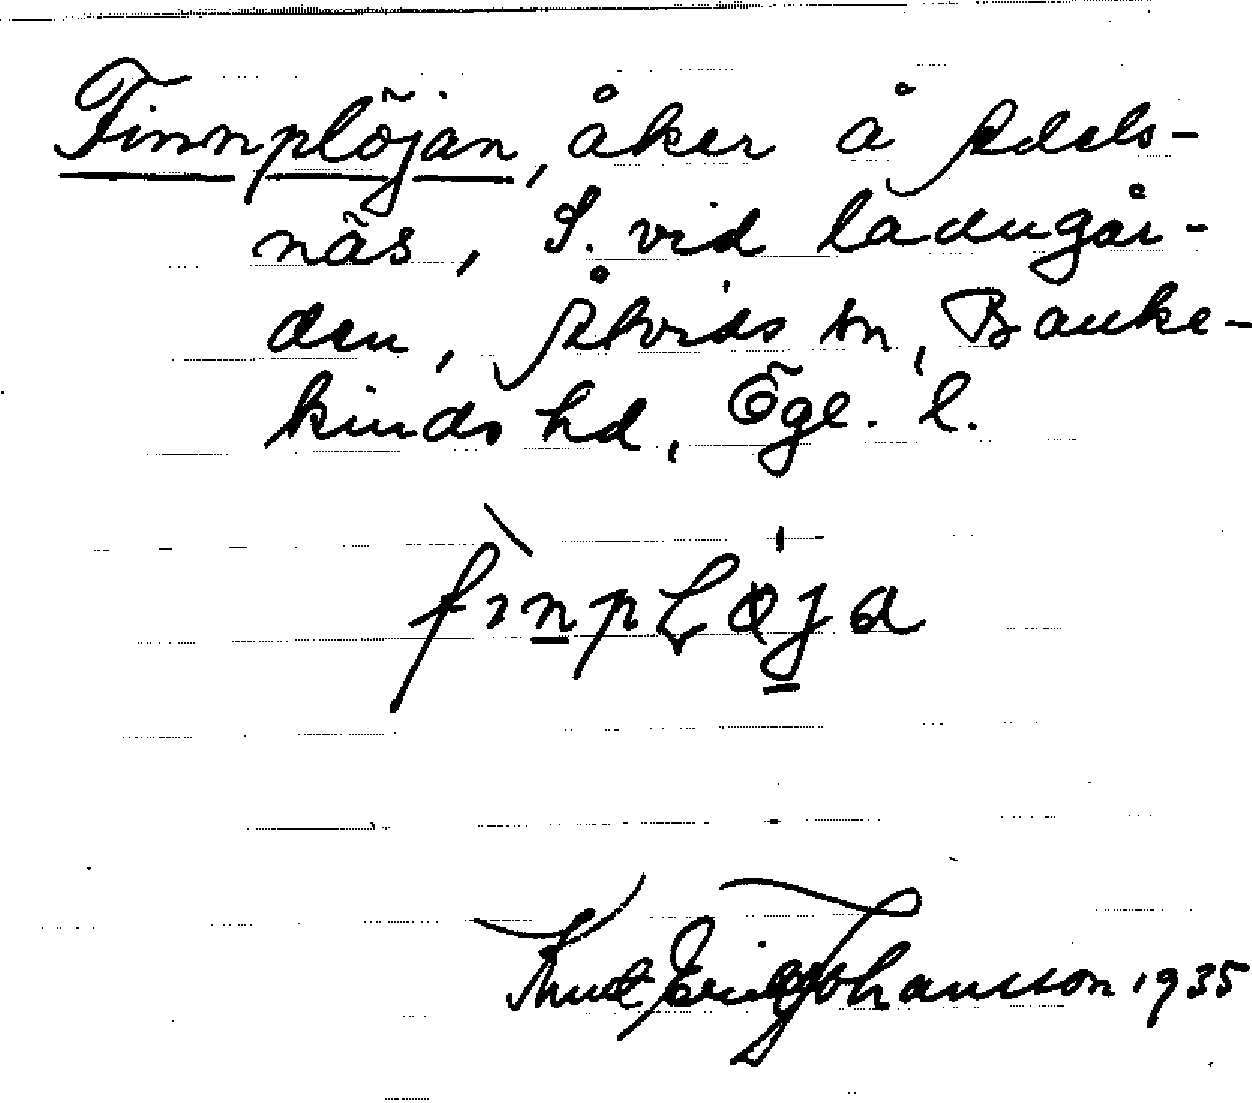 Finnplöjan, åker å Adels-
näs, S. vid ladugår-
den, Åtvids sn, Banke-
kinds hd, Ögl. l.
Knut Erik Johansson 1935